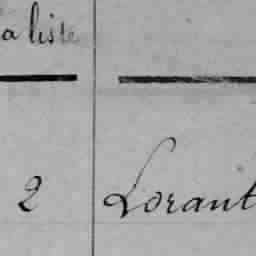 la liste
2 Lorant